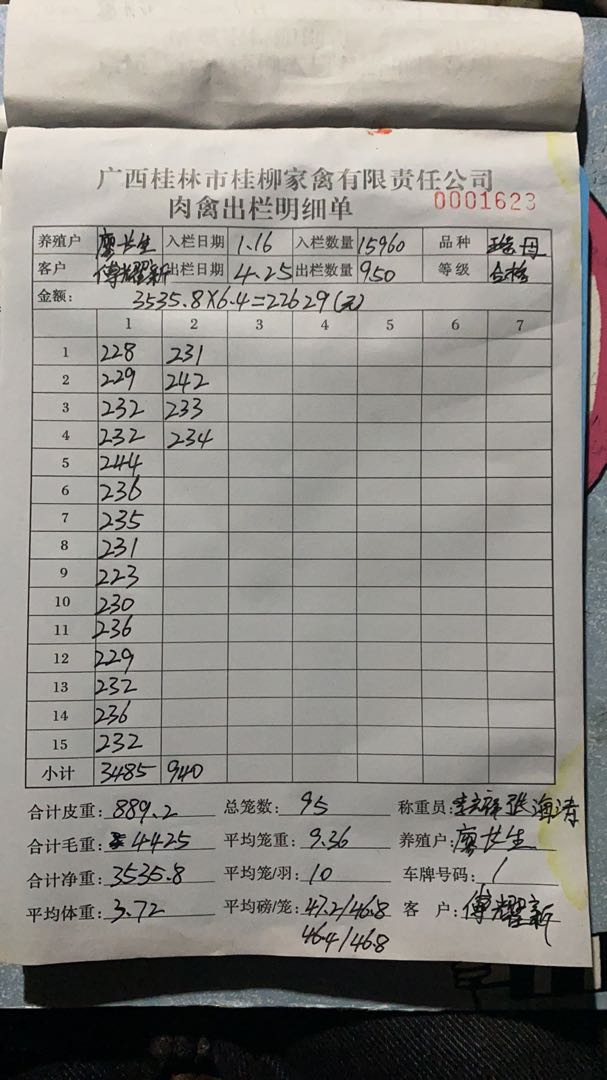 广西桂林市桂柳家禽有限责任公司
肉禽出栏明细单 0001623
养殖户 廖长生 入栏日期 1.16 入栏数量 15960 品种 母
客户 傅耀新 出栏日期 4.25 出栏数量 950 等级 合格
金额: 3535.8×6.4=22629(元)
1 2 3 4 5 6 7
1 228 231
2 229 242
3 232 233
4 232 234
5 244
6 236
7 235
8 231
9 223
10 230
11 236
12 229
13 232
14 236
15 232
小计 3485 940
合计皮重: 889.2 总笼数: 95 称重员: 张海清
合计毛重: 4425 平均笼重: 9.36 养殖户: 廖长生
合计净重: 3535.8 平均笼/羽: 10 车牌号码: /
平均体重: 3.72 平均磅/笼: 47.2/46.8 客户: 傅耀新
46.4/46.8